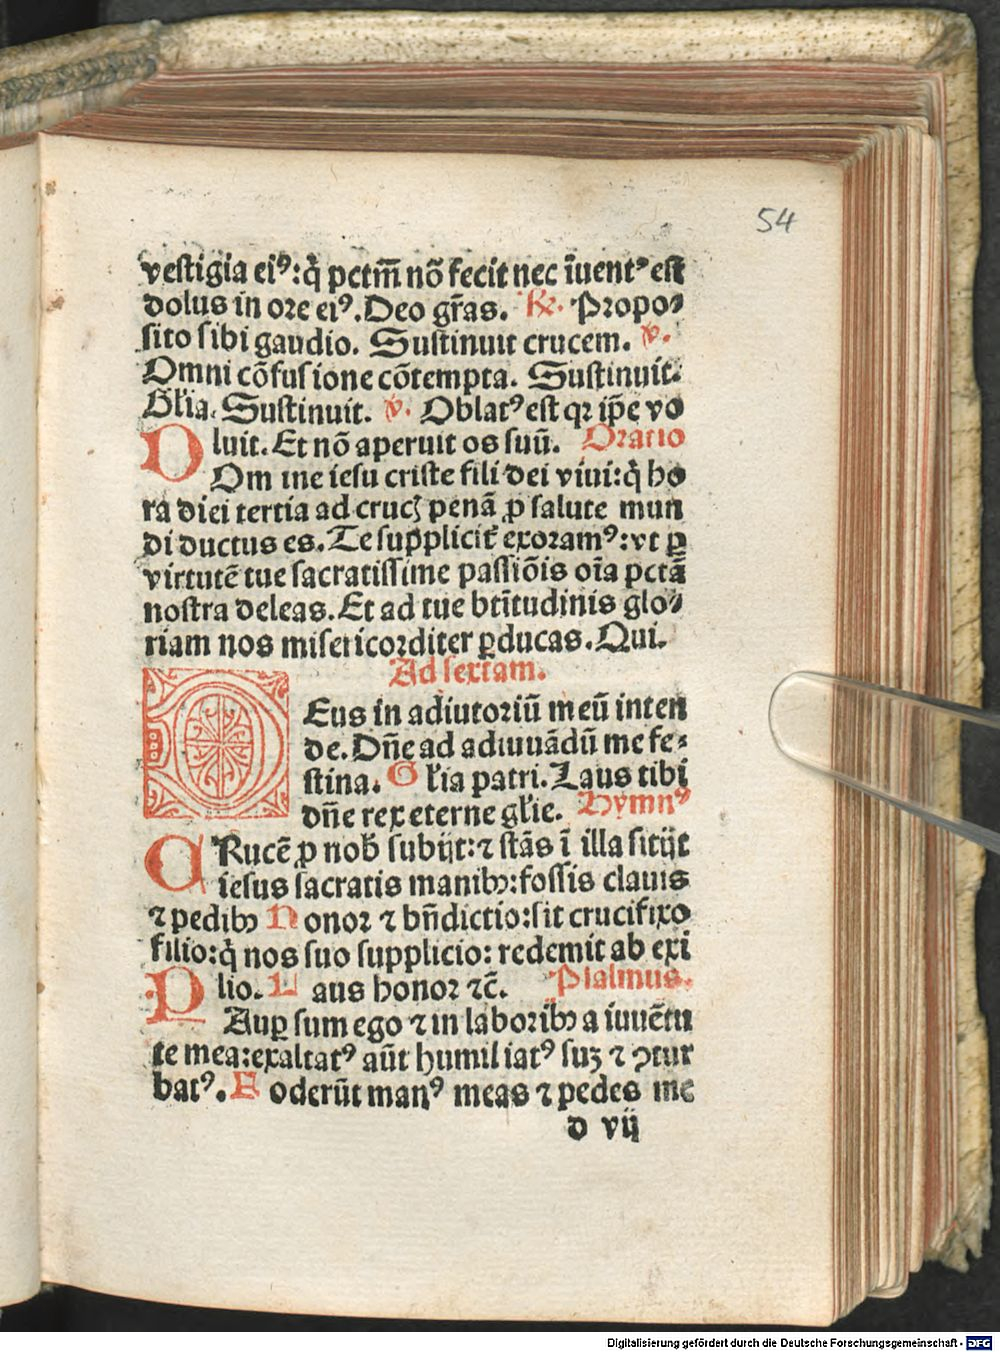 54
vestigia ei⁹: q̇ pctm̄ nō fecit nec īuent⁹ est
dolus in ore ei⁹. Deo gr̄as. ℟. Propo⸗
sito sibi gaudio. Sustinuit crucem. v.
Omni cōfusione cōtempta. Sustinuit.
Gl̄ia. Sustinuit. v. Oblat⁹ est qꝛ ip̄e vo
luit. Et nō aperuit os suū. Oratio
DOm ine iesu criste fili dei viui: q̇ ho
ra diei tertia ad crucꝫ penā ꝓ salute mun
di ductus es. Te suppliciť exoram⁹: vt ꝑ
virtutē tue sacratissime passiōis oīa pctā
nostra deleas. Et ad tue btītudinis glo⸗
riam nos misericorditer ꝑducas. Qui.
Ad sextam.
DEus in adiutoriū meū inten
de. Dn̄e ad adiuuādū me fe⸗
stina. Gl̄ia patri. Laus tibi
dn̄e rex eterne gl̄ie. Hymn⁹
CRucē ꝓ nob̄ subijt: ⁊ stās ī illa sitijt
iesus sacratis manibꝫ: fossis clauis
⁊ pedibꝫ Honor ⁊ bn̄dictio: sit crucifixo
filio: q̇ nos suo supplicio: redemit ab exi
lio. Laus honor ⁊c̄. Psalmus.
PAuꝑ sum ego ⁊ in laboribꝫ a iuuētu
te mea: exaltat⁹ aūt humiliat⁹ suꝫ ⁊ ꝯtur
bat⁹. Foderūt man⁹ meas ⁊ pedes me
d vij
Digitalisierung gefördert durch die Deutsche Forschungsgemeinschaft - DFG